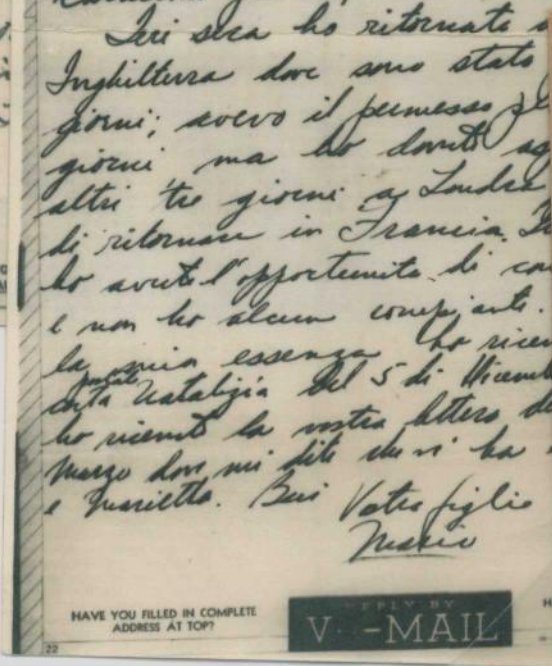 Ieri sera ho ritornato
Inghilterra dove sono stato
giorni; avevo il permesso
giorni, ma ho dovuto
altri tre giorni a Londra
di ritornare in Francia.
ho avuto l'opportunita di
e non ho alcun
la mia essenza ho
carta Natalizia del 5 di
ho ricevuto la vostra lettera
Marzo dove mi dite che vi ha
e Marietta. Baci Vostro figlio
Mario
HAVE YOU FILLED IN COMPLETE
ADDRESS AT TOP?
REPLY BY
V - -MAIL
22